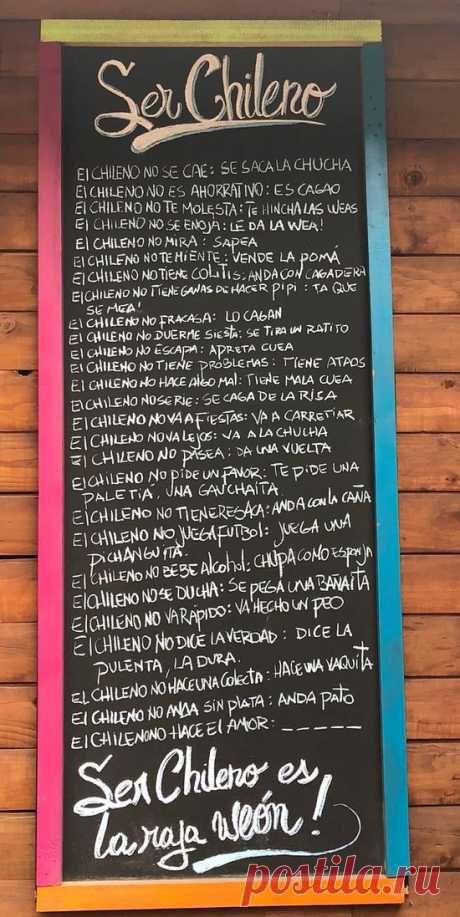 Ser Chileno
El CHILENO NO SE CAE: SE SACA LA CHUCHA
El CHILENO NO ES AHORRATIVO: ES CAGAO
El CHILENO NO TE MOLESTA: TE HINCHA LAS WEAS
El CHILENO NO SE ENOJA: LE DA LA WEA!
El CHILENO NO MIRA: SAPEA
El CHILENO NO TE MIENTE: VENDE LA POMÁ
El CHILENO NO TIENE COLITIS: ANDA CON CAGADERA
El CHILENO NO TIENE GANAS DE HACER PIPI: TA QUE
SE MEA!
El CHILENO NO FRACASA: LO CAGAN
El CHILENO NO DUERME SIESTA: SE TIRA UN RATITO
El CHILENO NO ESCAPA: APRETA CUEA
El CHILENO NO TIENE PROBLEMAS: TIENE ATAOS
El CHILENO NO HACE ALGO MAL: TIENE MALA CUEA
El CHILENO NO SERIE: SE CAGA DE LA RISA
El CHILENO NO VA A FIESTAS: VA A CARRETIAR
El CHILENO NO VA LEJOS: VA A LA CHUCHA
El CHILENO NO PASEA: DA UNA VUELTA
El CHILENO NO PIDE UN FAVOR: TE PIDE UNA
PALETIA, UNA GAUCHAITA.
El CHILENO NO TIENE RESACA: ANDA CON LA CAÑA
El CHILENO NO JUEGA FUTBOL: JUEGA UNA
PICHANGUITA.
El CHILENO NO BEBE Alcohol: CHUPA COMO ESPONJA
El CHILENO NO SE DUCHA: SE PEGA UNA BAÑAITA
El CHILENO NO VA RÁPIDO: VA HECHO UN PEO
El CHILENO NO DICE LA VERDAD: DICE LA
PULENTA, LA DURA.
EL CHILENO NO HACE UNA COLECTA: HACE UNA VAQUITA
El CHILENO NO ANDA SIN PLATA: ANDA PATO
El CHILENO NO HACE EL AMOR: _ _ _ _ _
Ser Chileno es
la raja weón!
postila.ru